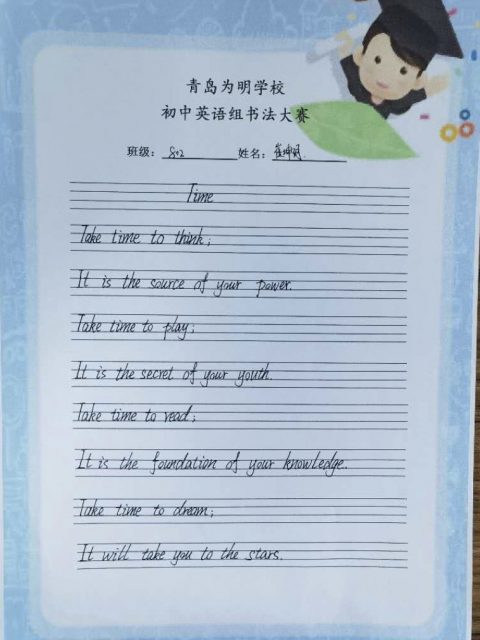 青岛为明学校
初中英语组书法大赛
班级: 8+2 姓名:
Time
Take time to think;
It is the source of your power.
Take time to play;
It is the secret of your youth.
Take time to read;
It is the foundation of your knowledge.
Take time to dream;
It will take you to the stars.